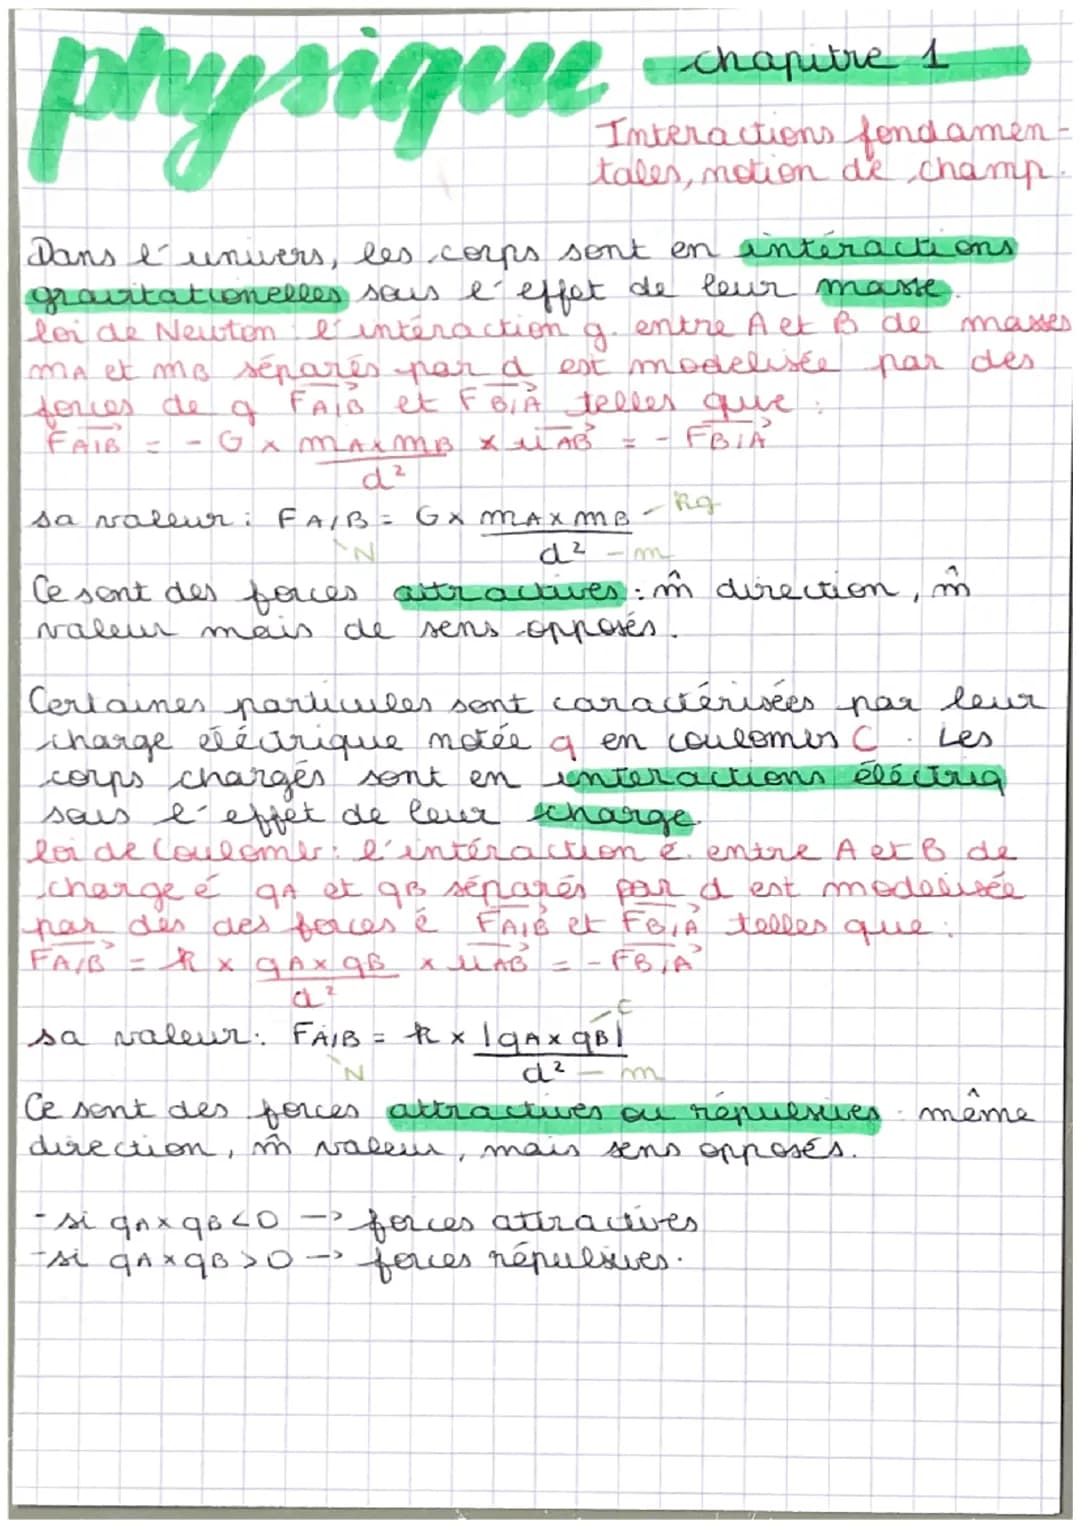 physique chapitre 1
Interactions fondamen-
tales, notion de champ.
Dans l'univers, les corps sont en intéractions
gravitationelles sous l'effet de leur masse.
loi de Newton : l'intéraction g. entre A et B de masses
mA et mB séparés par d est modelisée par des
forces de g FA/B et FB/A telles que :
FA/B = - G x mA x mB x uAB = - FB/A
d²
sa valeur : FA/B = G x mA x mB - Kg
N d² - m
Ce sont des forces attractives : m̂ direction, m̂
valeur mais de sens opposés.
Certaines particules sont caractérisées par leur
charge éléctrique notée q en coulombs C. Les
corps chargés sont en interactions éléctriq
sous l'effet de leur charge.
loi de Coulomb : l'intéraction é. entre A et B de
charge é qA et qB séparés par d est modelisée
par des des forces é FA/B et FB/A telles que :
FA/B = k x qA x qB x uAB = - FB/A
d²
sa valeur : FA/B = k x |qA x qB| - C
N d² - m
Ce sont des forces attractives ou répulsives : même
direction, m̂ valeur, mais sens opposés.
- si qA x qB < 0 -> forces attractives
- si qA x qB > 0 -> forces répulsives.